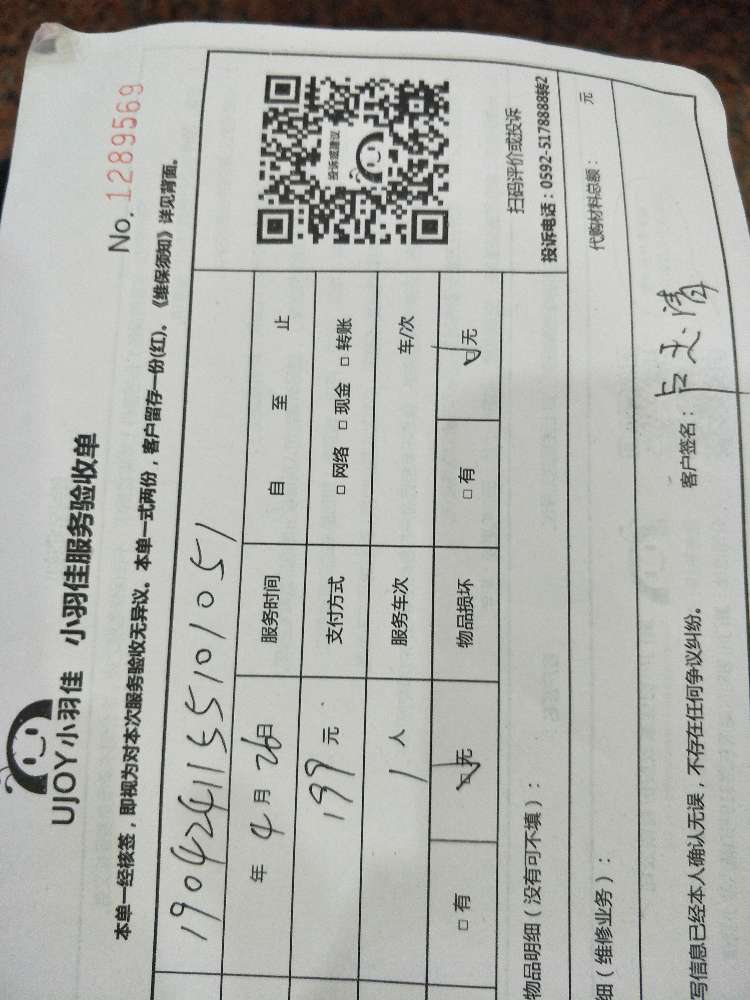 UJOY小羽佳 小羽佳服务验收单
No. 1289569
本单一经核签，即视为对本次服务验收无异议。本单一式两份，客户留存一份(红)。《维保须知》详见背面。
1904241155101051
年 4 月 26 日 服务时间 自 至 止
199 元 支付方式 □ 网络 □ 现金 □ 转账
1 人 服务车次 车/次
□ 有 □ 无 物品损坏 □ 有 □ 无
投诉或建议
扫码评价或投诉
投诉电话：0592-5178888转2
物品明细（没有可不填）：
细（维修业务）： 代购材料总额： 元
客户签名：
写信息已经本人确认无误，不存在任何争议纠纷。